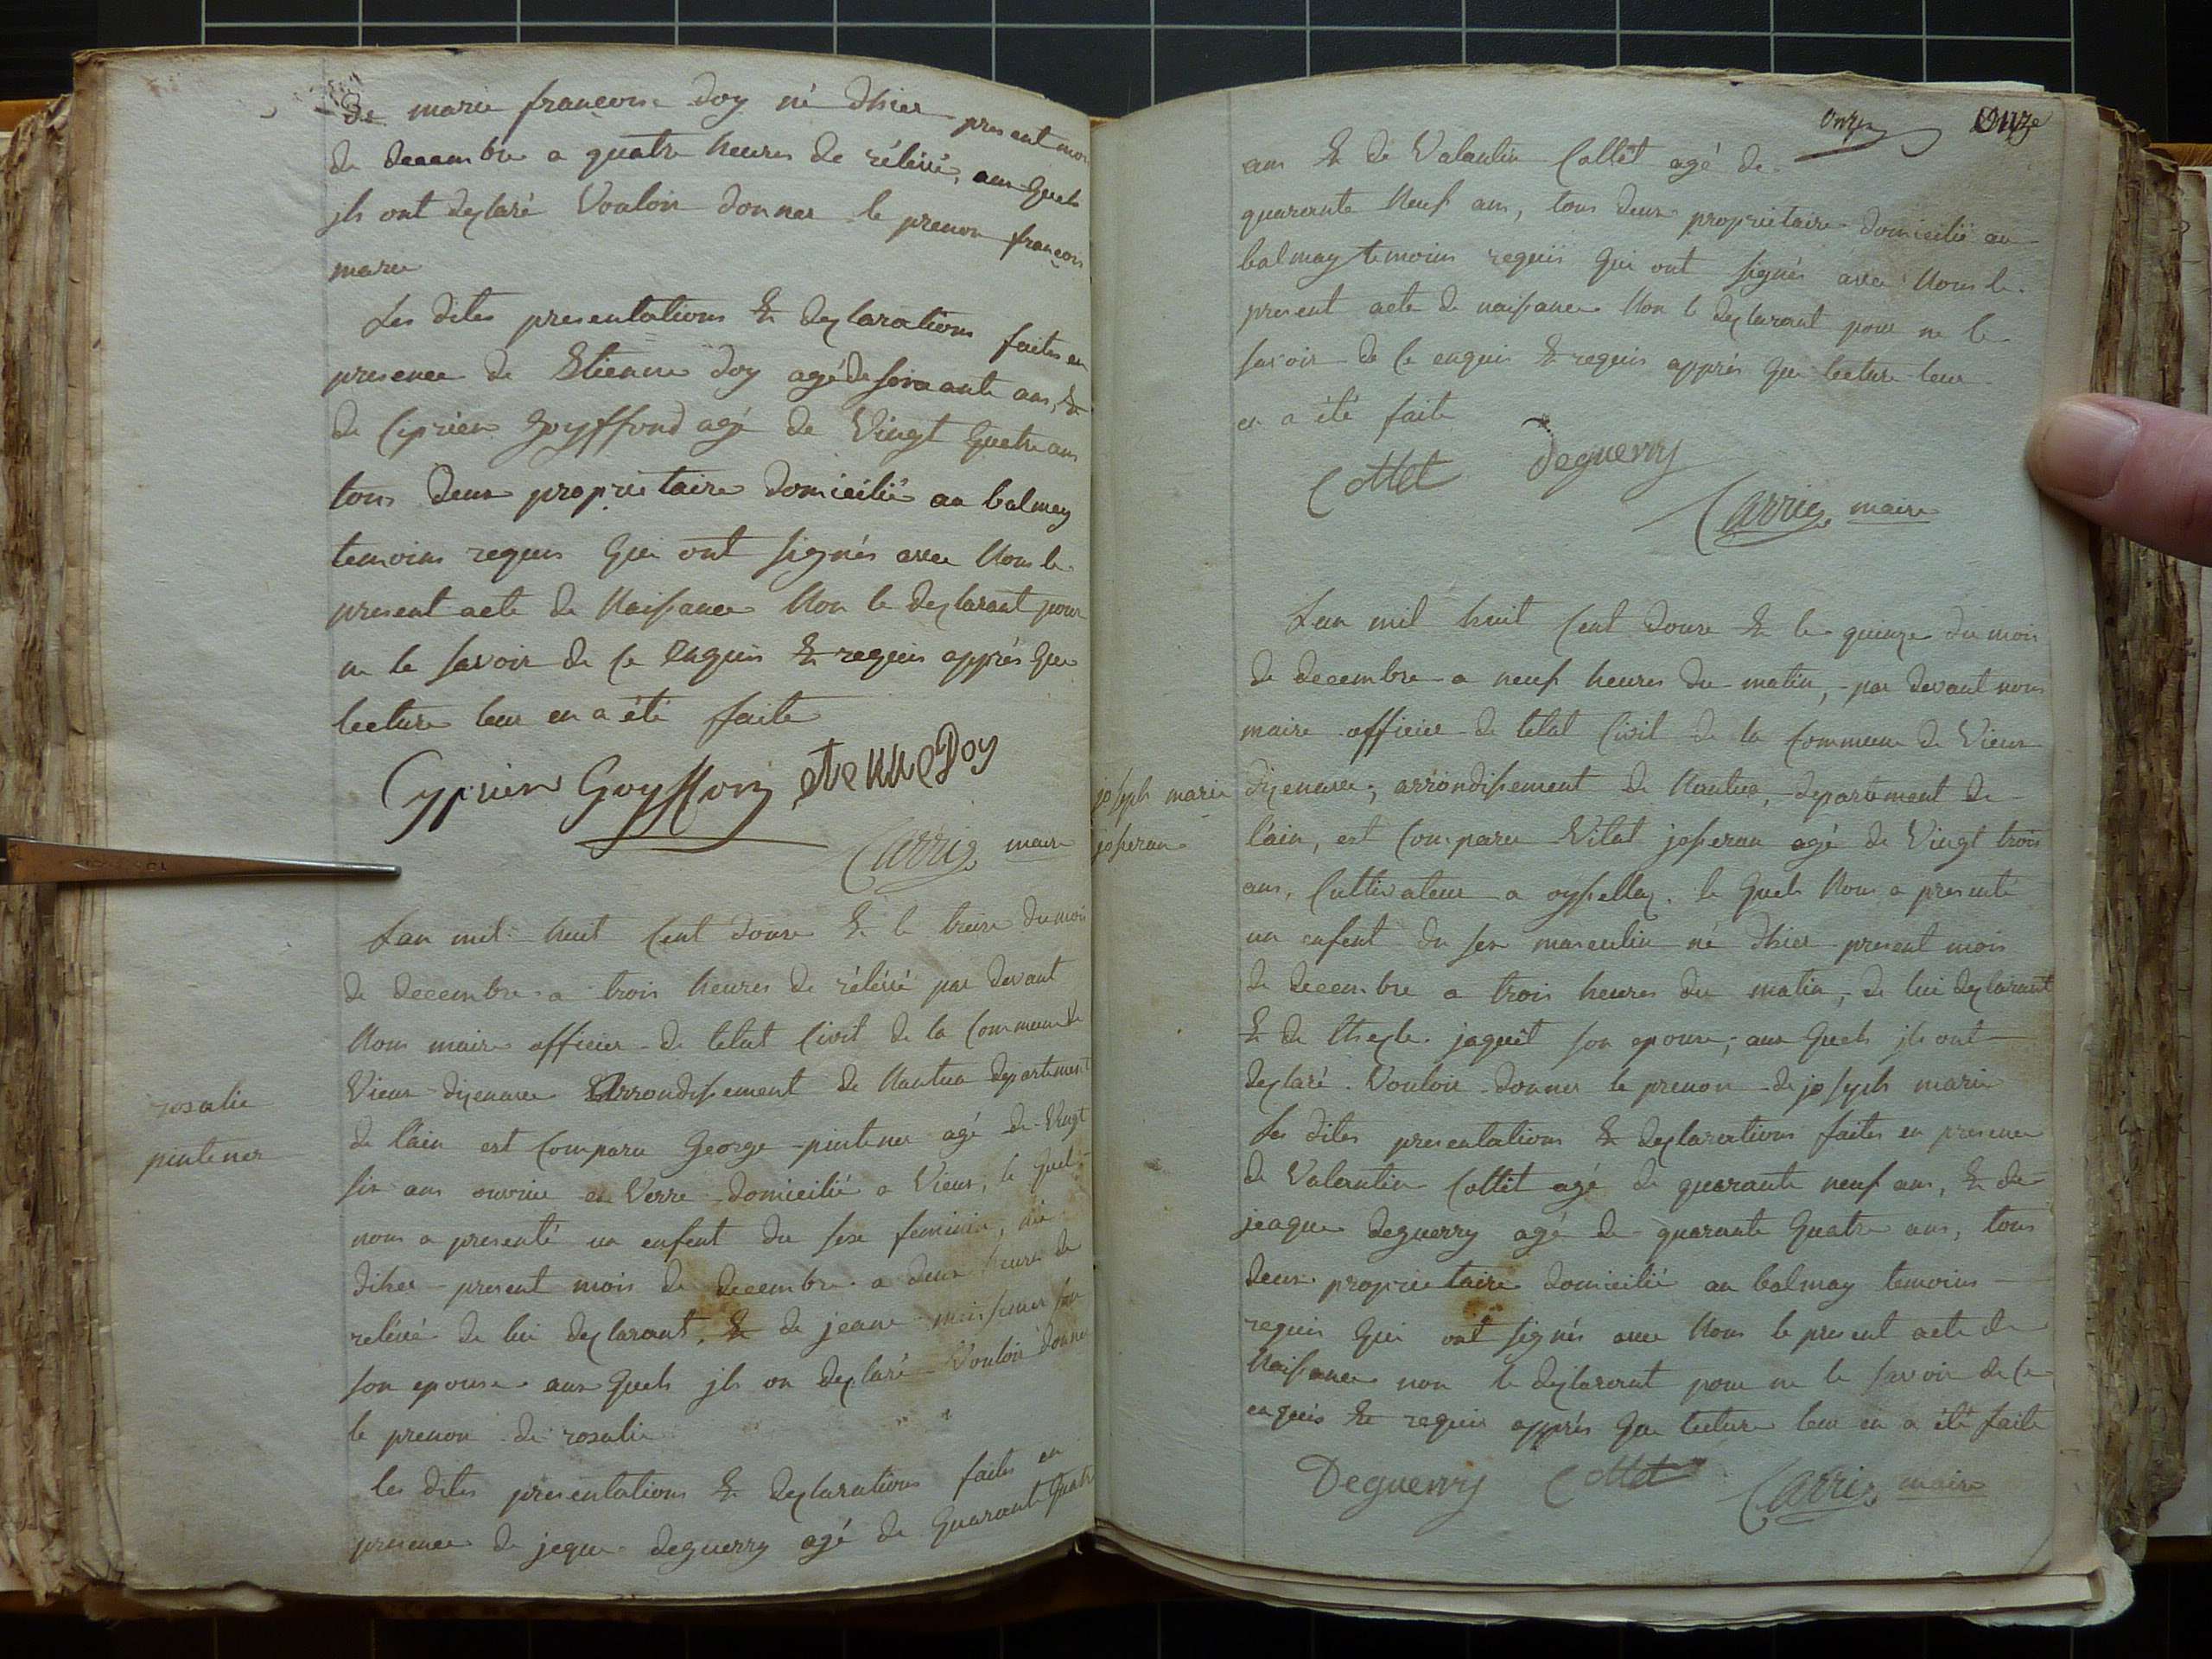 de marie françoise doy né dhier present mois
de decembre a quatre heures de rélévé, aux quels
jls ont deylaré Vouloir donner le prenon françois
marie
Les dites presentations & deylarations faites en
presence de Etienne doy agé de soixante ans, &
de Ciprien goyffond agé de Vingt quatre ans
tous deux proprietaire domicilié au balmay
temoins requis qui ont signés avec Nous le
present acte de Naissance Non le deylarant pour
ne le savoir de ce enquis & requis apprés que
lecture leur en a été faite
Cyprien Goyffon etienne Doy
Carrier maire
Lan mil huit Cent douze & le treize du mois
de decembre a trois heures de rélévé par devant
Nous maire officier de letat Civil de la Commune de
Vieux dizenave Arrondissement de Nantua departement
de l'ain est Comparu George pintener agé de Vingt
six ans ouvrier en Verre domicilié a Vieux, le quel
nous a presenté un enfent du sexe feminin, né
dhier present mois de decembre a deux heures de
relévé de lui deylarant, & de jeane
son epouse aux quels jls on deylaré Vouloir donner
le prenon de rosalie
les dites presentations & deylarations faites en
presence de jeque deguerry agé de quarante quatre
rosalie
pintener
Onze Onze
ans & de Valantin Collet agé de
quarante Neuf ans, tous deux proprietaire domicilié au
balmay temoins requis qui ont signés avec Nous le
present acte de naissance Non le deylarant pour ne le
savoir de ce enquis & requis apprés que lecture leur
en a été faite
Collet Deguerry
Carrier maire
Lan mil huit Cent douze & le quinze du mois
de decembre a neuf heures du matin, par devant nous
maire officier de letat Civil de la Commune de Vieux
dizenave, arrondissement de Nantua, departement de
l'ain, est Comparu Vital josseran agé de Vingt trois
ans, Cultivateur a oyssellaz. le quel Nous a presenté
un enfent du sex masculin né dhier present mois
de decembre a trois heures du matin, de lui deylarant
& de theyle jaquit son epouse, aux quels jls ont
deylaré Vouloir donner le prenon de joseph marie
Les dites presentations & deylarations faites en presence
de Valentin Collet agé de quarante neuf ans, & de
jeaque deguerry agé de quarante quatre ans, tous
deux proprietaire domicilié au balmay temoins
requis qui ont signés avec Nous le present acte de
Naissance non le deylarant pour ne le savoir de ce
enquis & requis apprés que lecture leur en a été faite
Deguerry Collet Carrier maire
joseph marie
josseran